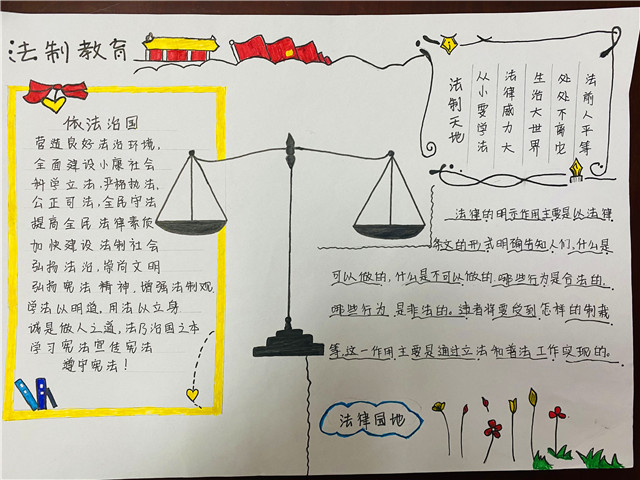 法制教育
依法治国
营造良好法治环境,
全面建设小康社会
科学立法,严格执法,
公正司法,全民守法
提高全民法律素质
加快建设法制社会
弘扬法治,崇尚文明
弘扬宪法精神,增强法制观
学法以明道,用法以立身
诚是做人之道,法乃治国之本
学习宪法宣传宪法
遵守宪法!
法制天地
从小要学法
法律威力大
生治大世界
处处不离它
法前人平等
法律的明示作用主要是以法律
条文的形式明确告知人们,什么是
可以做的,什么是不可以做的。哪些行为是合法的。
哪些行为是非法的。违者将要受到怎样的制裁
等,这一作用主要是通过立法和普法工作实现的。
法律园地